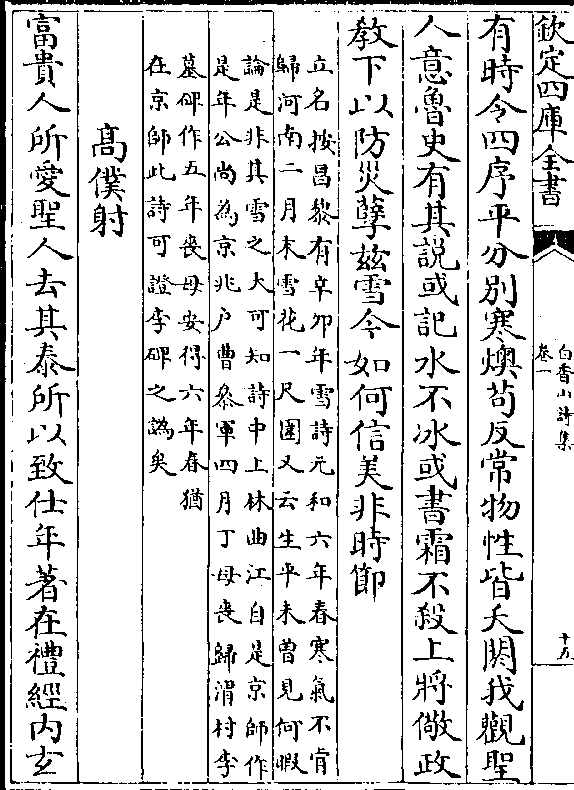 欽定四庫全書
白香山詩集
卷一
十五
有時令四序平分別寒燠苟反常物性皆夭閼我觀聖
人意魯史有其説或記水不冰或書霜不殺上將儆政
教下以防災孽兹雪今如何信美非時節
立名按昌黎有辛卯年雪詩元和六年春寒氣不肯
歸河南二月末雪花一尺圍又云生平未曽見何暇
論是非其雪之大可知詩中上林曲江自是京師作
是年公尚為京兆户曹叅軍四月丁母喪歸渭村李
墓碑作五年喪母安得六年春猶
在京師此詩可證李碑之譌矣
髙僕射
富貴人所愛聖人去其泰所以致仕年著在禮經内玄